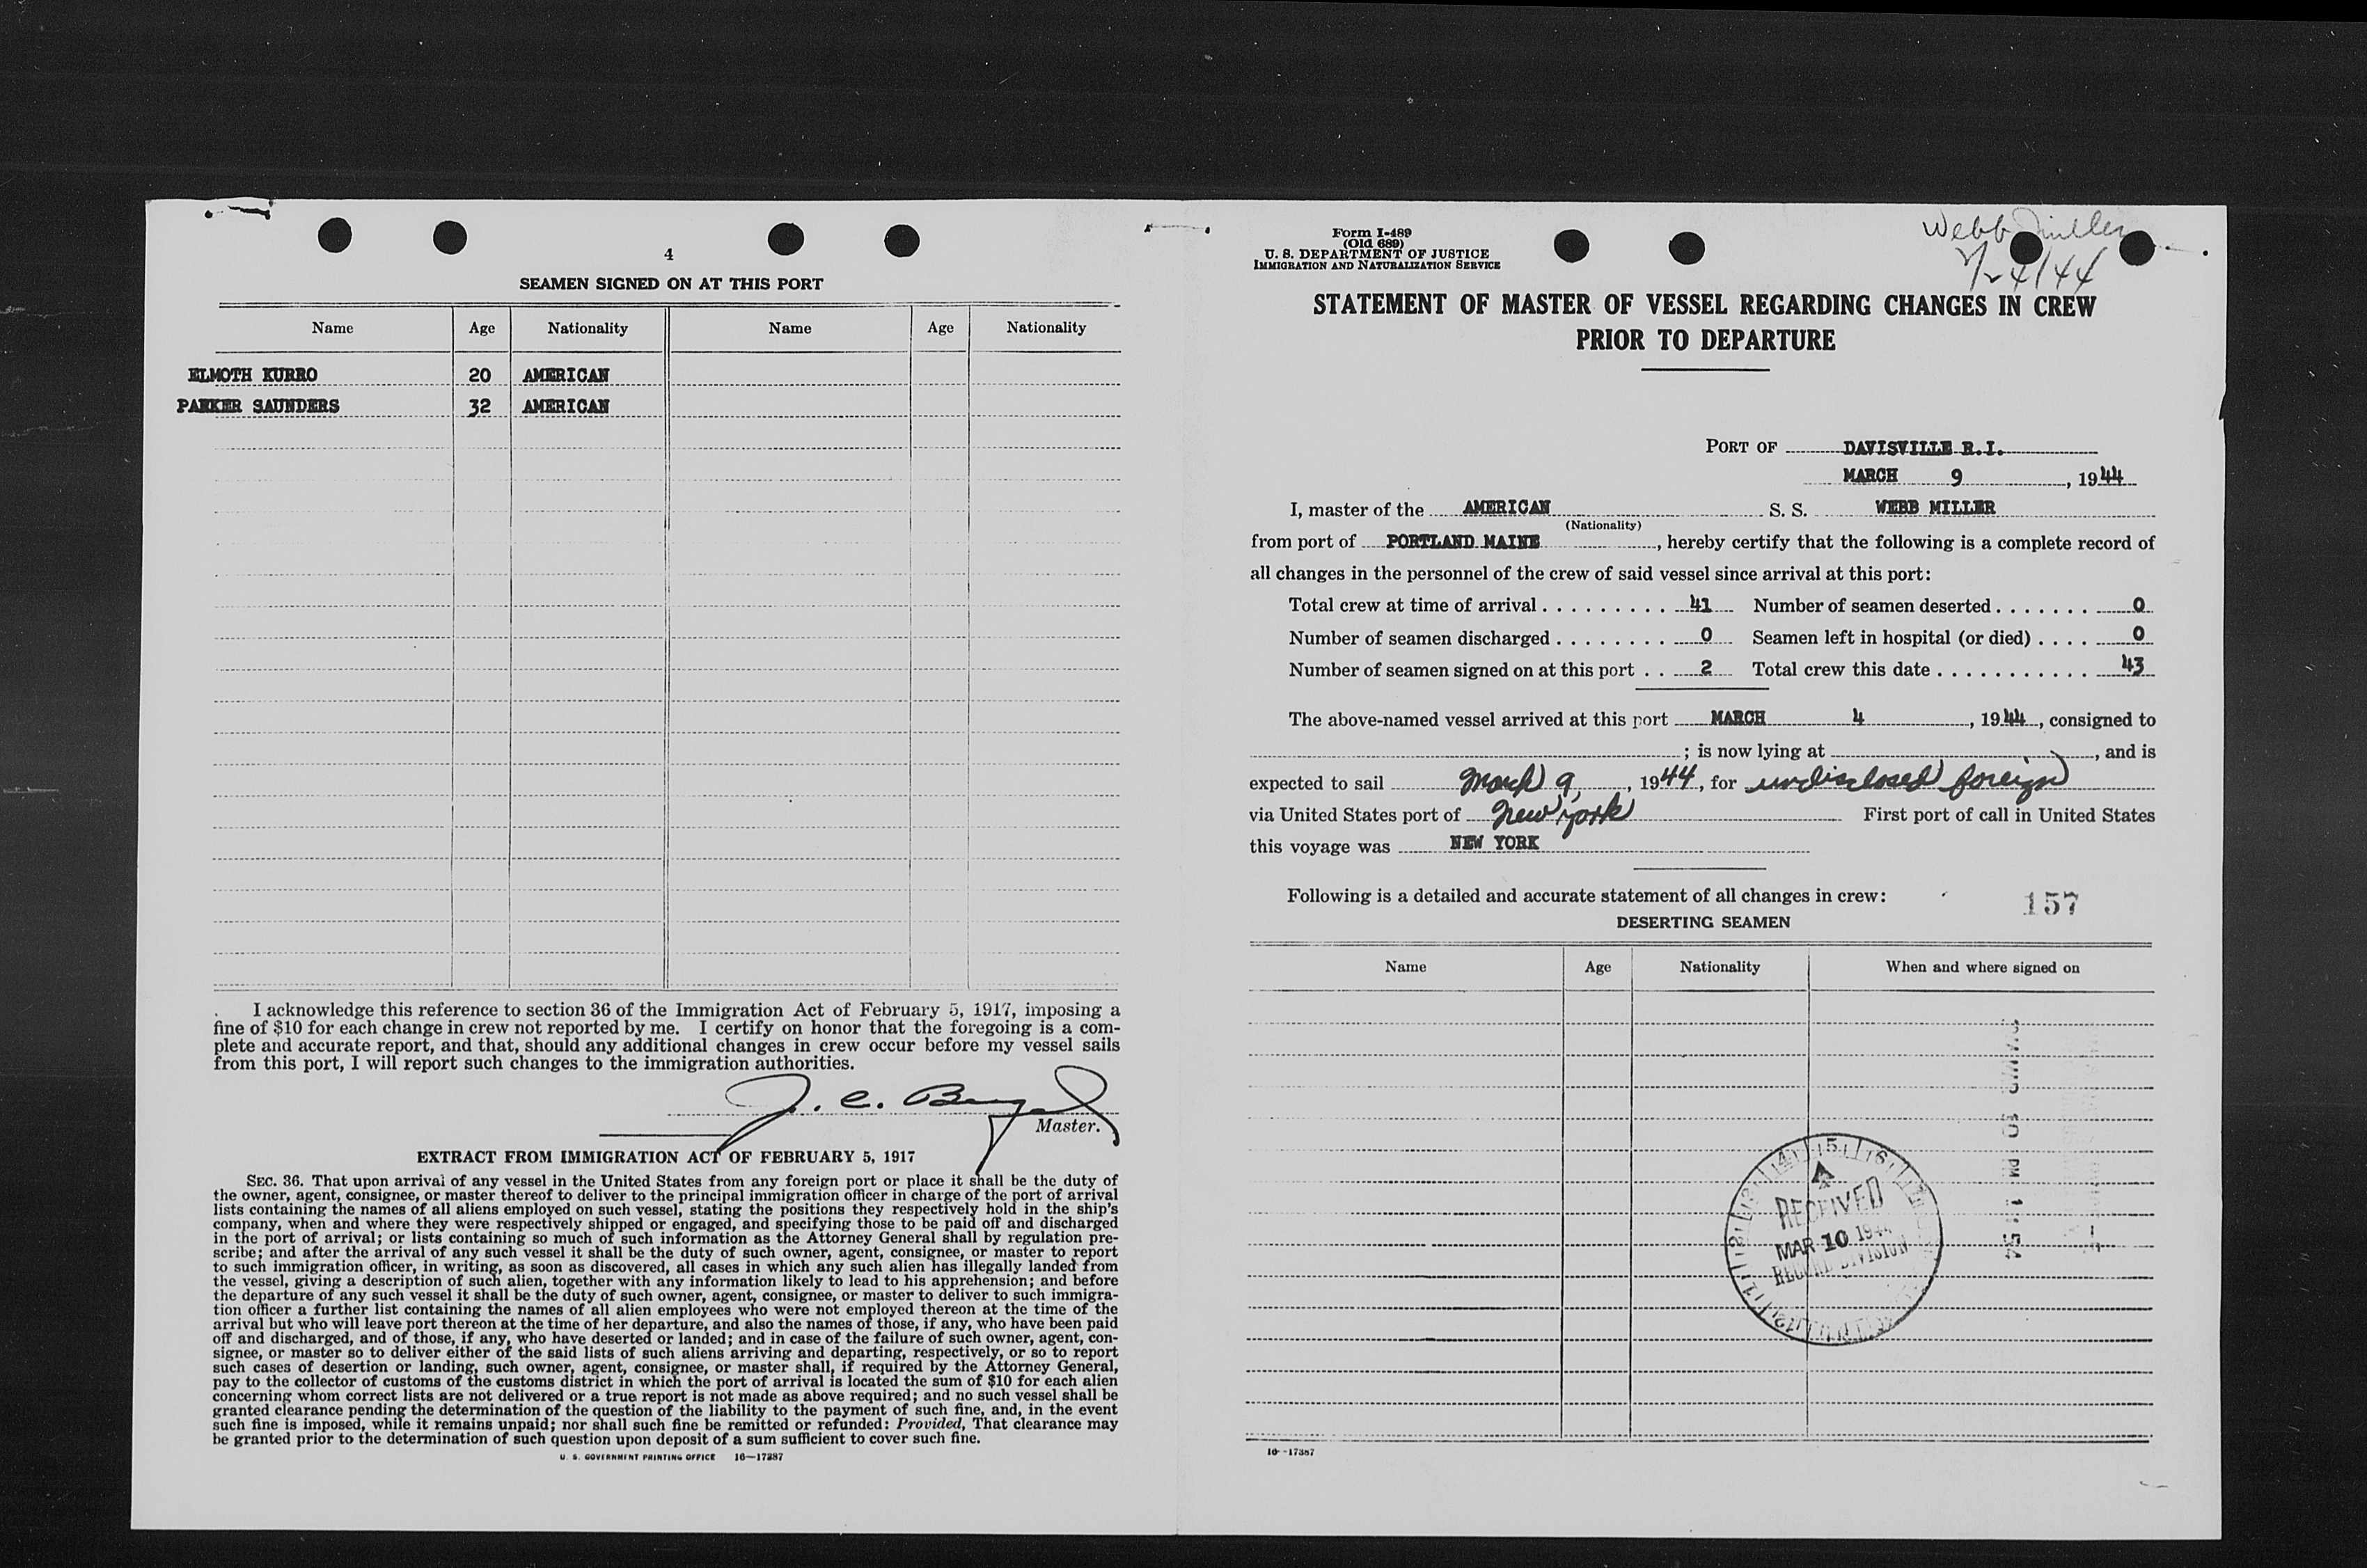 4
SEAMEN SIGNED ON AT THIS PORT
Name Age Nationality Name Age Nationality
ELMOTH KURRO 20 AMERICAN
PARKER SAUNDERS 32 AMERICAN
I acknowledge this reference to section 36 of the Immigration Act of February 5, 1917, imposing a
fine of $10 for each change in crew not reported by me. I certify on honor that the foregoing is a com-
plete and accurate report, and that, should any additional changes in crew occur before my vessel sails
from this port, I will report such changes to the immigration authorities.
J. C.
Master.
EXTRACT FROM IMMIGRATION ACT OF FEBRUARY 5, 1917
SEC. 36. That upon arrival of any vessel in the United States from any foreign port or place it shall be the duty of
the owner, agent, consignee, or master thereof to deliver to the principal immigration officer in charge of the port of arrival
lists containing the names of all aliens employed on such vessel, stating the positions they respectively hold in the ship's
company, when and where they were respectively shipped or engaged, and specifying those to be paid off and discharged
in the port of arrival; or lists containing so much of such information as the Attorney General shall by regulation pre-
scribe; and after the arrival of any such vessel it shall be the duty of such owner, agent, consignee, or master to report
to such immigration officer, in writing, as soon as discovered, all cases in which any such alien has illegally landed from
the vessel, giving a description of such alien, together with any information likely to lead to his apprehension; and before
the departure of any such vessel it shall be the duty of such owner, agent, consignee, or master to deliver to such immigra-
tion officer a further list containing the names of all alien employees who were not employed thereon at the time of the
arrival but who will leave port thereon at the time of her departure, and also the names of those, if any, who have been paid
off and discharged, and of those, if any, who have deserted or landed; and in case of the failure of such owner, agent, con-
signee, or master so to deliver either of the said lists of such aliens arriving and departing, respectively, or so to report
such cases of desertion or landing, such owner, agent, consignee, or master shall, if required by the Attorney General,
pay to the collector of customs of the customs district in which the port of arrival is located the sum of $10 for each alien
concerning whom correct lists are not delivered or a true report is not made as above required; and no such vessel shall be
granted clearance pending the determination of the question of the liability to the payment of such fine, and, in the event
such fine is imposed, while it remains unpaid; nor shall such fine be remitted or refunded: Provided, That clearance may
be granted prior to the determination of such question upon deposit of a sum sufficient to cover such fine.
U. S. GOVERNMENT PRINTING OFFICE 16—17387
Form I-489
(Old 689)
U. S. DEPARTMENT OF JUSTICE
IMMIGRATION AND NATURALIZATION SERVICE
Webb Miller
STATEMENT OF MASTER OF VESSEL REGARDING CHANGES IN CREW
PRIOR TO DEPARTURE
PORT OF DAVISVILLE R.I.
MARCH 9, 1944
I, master of the AMERICAN S. S. WEBB MILLER
(Nationality)
from port of PORTLAND MAINE, hereby certify that the following is a complete record of
all changes in the personnel of the crew of said vessel since arrival at this port:
Total crew at time of arrival . . . . . . . . . 41 Number of seamen deserted . . . . . . . 0
Number of seamen discharged . . . . . . . . 0 Seamen left in hospital (or died) . . . . 0
Number of seamen signed on at this port . . 2 Total crew this date . . . . . . . . . . . 43
The above-named vessel arrived at this port MARCH 4, 1944, consigned to
; is now lying at , and is
expected to sail March 9, , 1944, for undisclosed foreign
via United States port of New York First port of call in United States
this voyage was NEW YORK
Following is a detailed and accurate statement of all changes in crew:
157
DESERTING SEAMEN
Name Age Nationality When and where signed on
RECEIVED
MAR 10 1944
RECORD DIVISION
10 PM 1:54
16-17387